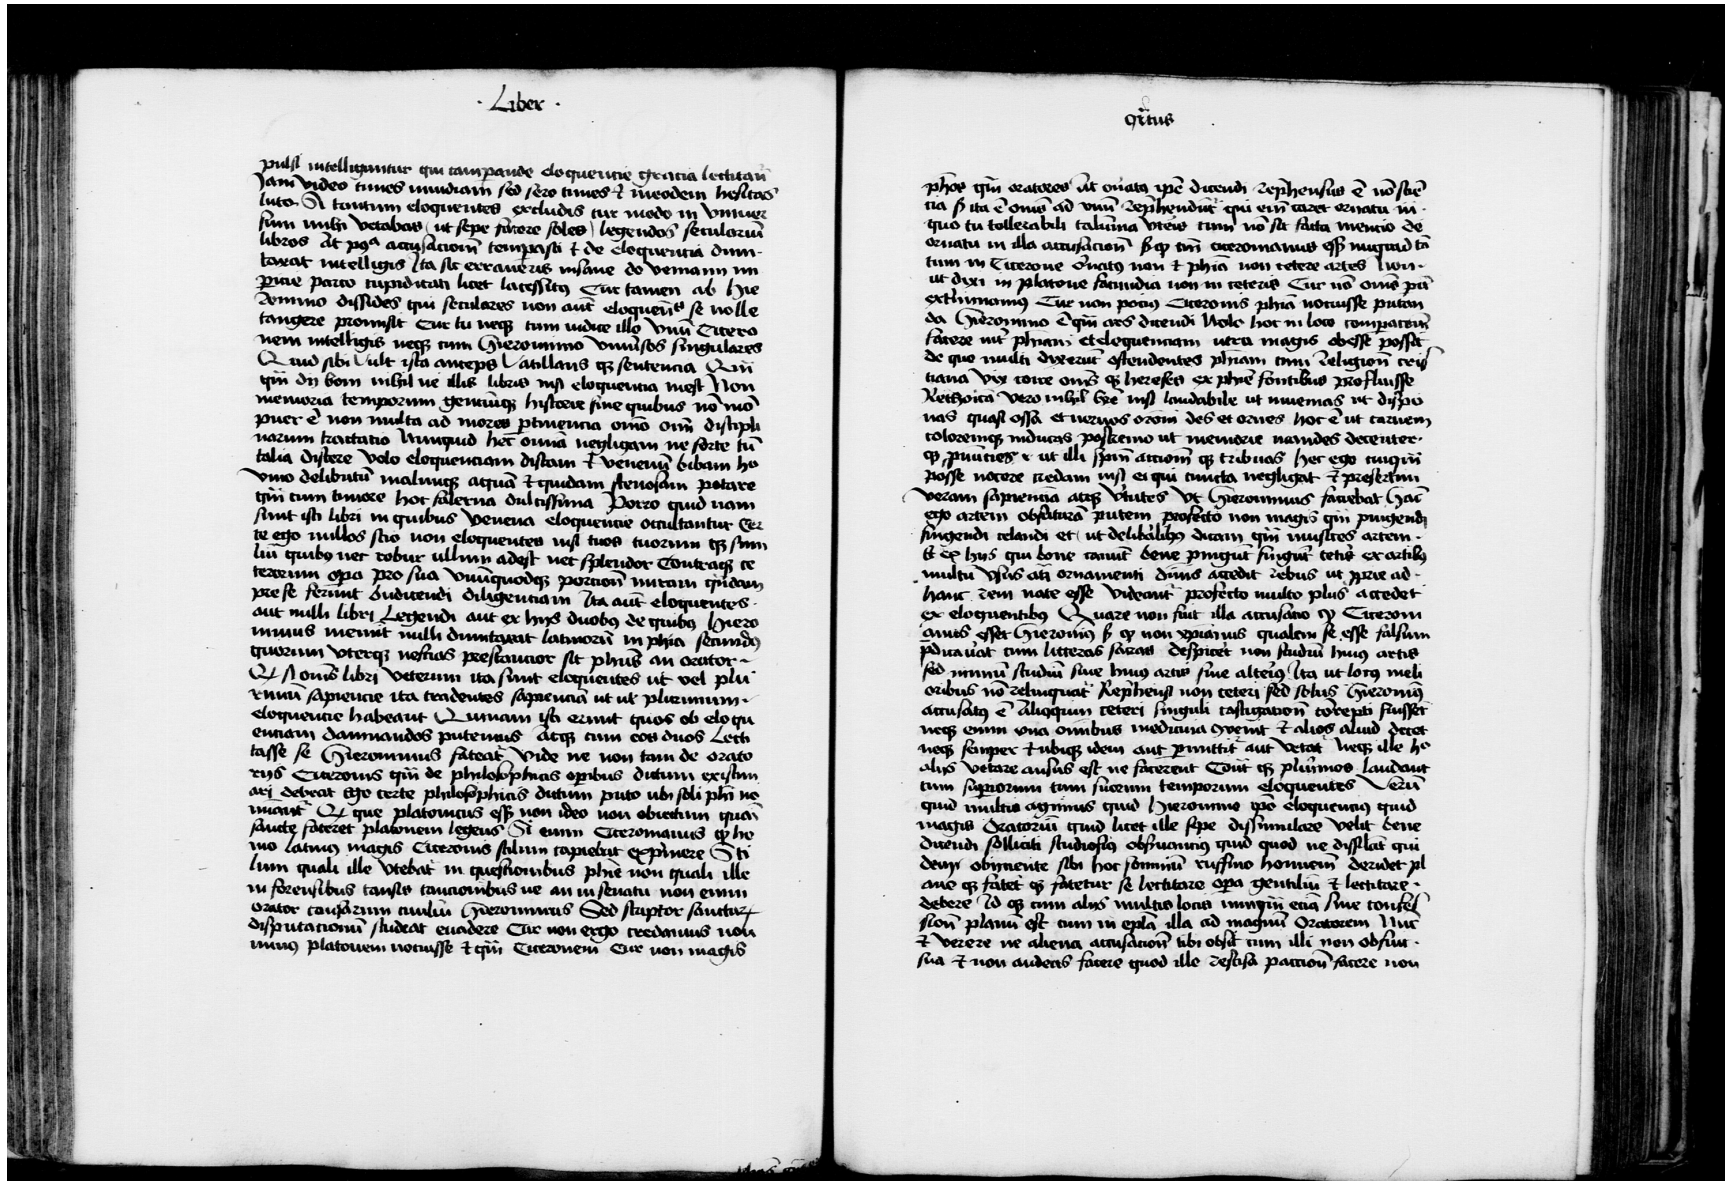 · Liber ·
pulsi intelliguntur qui comparande eloquencie gracia lectitant̄
Iam video times invidiam sed sero times et in eodem hesitas
luto. Si tantum eloquentes excludis cur modo in univer
sum mihi vetabas (ut sepe facere soles) legendos seculariū
libros At pꝰᵃ accusacionē temperasti et de eloquencia dum-
taxat intelligis Ita sit erraveris insane do veniam im
picie parco cupiditati licet lacessitꝰ Cur tamen ab hie
ronimo dissides qui seculares non aut̄ eloquen̄s se nolle
tangere promisit Cur tu neqꝫ cum iudice illo unū Citero
nem intelligis neqꝫ cum Hieronimo univ̄sos singulares
Quid sibi vult ista anceps vatillans qꝫ sentencia Qm̄
qm̄ dij boni nihil ne illis libris nisi eloquencia inest Non
memoria temporum gencūqꝫ historie sine quibus nō nō
puer ē non multa ad mores ꝑtinencia om̄o om̄ discipli
narum tractatio Nunquid hec omnia negligam ne forte tū
talia discere volo eloquenciam discam et venenū bibam ho
vino delibutū malimqꝫ aquā et quidam senosam potare
qm̄ cum timore hoc falerna dulcissima Porro quid nam
sunt isti libri in quibus venena eloquencie occultantur Cer
te ego nullos scio non eloquentes nisi tuos tuorum qꝫ simi
liū quibꝰ nec robur ullum adest nec splendor Contraqꝫ ce
terorum oꝑa pro sua unūquodqꝫ porcionē miram qūdam
pre se ferunt bn̄dicendi diligenciam Ita aut̄ eloquentes ·
aut nulli libri Legendi aut ex hijs duobꝰ de quibꝰ hiero
nimus meminit nulli dumtaxat latinorū in phīa secundꝰ
quorum uterqꝫ nescias prestancior sit phūs an orator ·-
Qꝫ si om̄s libri veterum ita sunt eloquentes ut vel plu
rimū sapiencie ita tradentes sapiencia ut ut plurimum ·
eloquencie habeant Quinam isti erunt quos ob eloqu
enciam damnandos putemus Atqꝫ cum eos duos Lecti
tasse se Hieronimus fateaꞇ̄ Vide ne non tam de orato
rijs Citeronis qm̄ de philosophicis oꝑibus dictum existim
ari debeat Ego certe philosophicis dictum puto ubi soli phī no
minant̄ Qꝫ que platonicus esse non ideo non obiectum quā
sancte faceret platonem legens Si enim Citeronianus qꝫ ho
mo latinꝰ magis Citeronis stilum capiebat exp̄mere Sti
lum quali ille utebat̄ in questionibus phīe non quali ille
in forensibus causis concionibus ne an in senatu non enim
orator causarum civiliū Hieronimus Sed scriptor sanctarꝝ
disputacionū studeat evadere Cur non ergo credamus non
minus platonem nocuisse et qm̄ Citeronem Cur non magis
qr̄tus
phōs qm̄ oratores At ornatꝰ ip̄e dicendi rep̄hensus ē nō scīe
cia sꝫ ita ē om̄is ad unū rep̄hendunt̄ qui eī caret ornatu in ·
quo tu tollerabili calumnia uteris cum nō sit facta mencio de
ornatu in illa accusacionē sꝫ qꝫ tm̄ citeronianus esse nuquid tā
tum in Citerone ornatꝰ non et phīa non cetere artes Non ·
ut dixi in platone facundia non in ceteris Cur nō om̄s pū
extimamus Cur non pocius Citeronis phīam nocuisse putan
da Hieronimo ē qm̄ ars dicendi Nolo hoc in loco comparacionē
facere int̄ phīam et eloquenciam utra magis obesse possit
de quo multi dixerunt ostendentes phīam cum religionē cris
tiana vix coire om̄s qꝫ hereses ex phīe fontibus profluisse
Rethorica vero nihil hr̄e nisi laudabile ut invenias ut dispo
nas quasi ossa et nervos orōni des et ornes hoc ē ut carnem
coloremqꝫ inducas postremo ut memorie mandes decenter ·
qꝫ ꝓnūcies & ut illi spm̄ accionē qꝫ tribuas hec ego cuiqm̄
posse nocere credam nisi ei qui cuncta negligat et presertim
veram sapiencia atqꝫ vtutes ut Hieronimus faciebat Hāc
ego artem obscuturā putem profecto non magis qm̄ pingendi
fingendi celandi et (ut de liberalibꝰ dicam qm̄ musices artem ·
Et ex hijs qui bone canūt bene pingūt fingūt ceteris ex artibꝰ
multū usus atqꝫ ornamenti divinis accedit rebus ut ꝓprie ad ·
hanc rem nate esse videant̄ profecto multo plus accedet
ex eloquentibꝰ Quare non fuit illa accusatio qꝫ Citeroni
anus esset Hieronimꝰ sꝫ qꝫ non xpīanus qualem se esse falsum
p̄dicavat cum litteras sacras despicet non studiū huius artis
sed nimiū studium sive huius artis sive alteriꝰ Ita ut locus meli
oribus nō relinquat̄ Rep̄hensi non ceteri sed solus Hieronimꝰ
accusatꝰ ē Alioquin ceteri singuli castigacionē correpti fuissēt
neqꝫ enim una omnibus medicina ꝯvenit et alios aliud decet
neqꝫ semper et ubiqꝫ idem aut permittit̄ aut vetat̄ Neqꝫ ille ho
alijs vetare ausus est ne facerent Contͣ qꝫ plurimos laudavit
cum supꝰiorum tum suorum temporum eloquentes Verū
quid multis agimus quid Hieronimo ip̄o eloquencius quid
magis oratoriū quid licet ille sepe dissimulare velit bene
dicendi solliciti studiosiꝰ obs̄vancius quid quod ne dissilat qui
dem obiiciente sibi hoc somniū ruffino hominem deridet pl
ane qꝫ fatet̄ qꝫ fatetur se lectitare oꝑa gentiliū et lectitare ·
debere Id qꝫ cum alijs multis locis unqm̄ etiā sine confes
sionē planum est cum in ep̄la illa ad magnū Oratorem Nūc
et verere ne aliena accusacionē tibi obsit cum illi non obfuit ·
sua et non audeas facere quod ille rescisa paccionē facere non